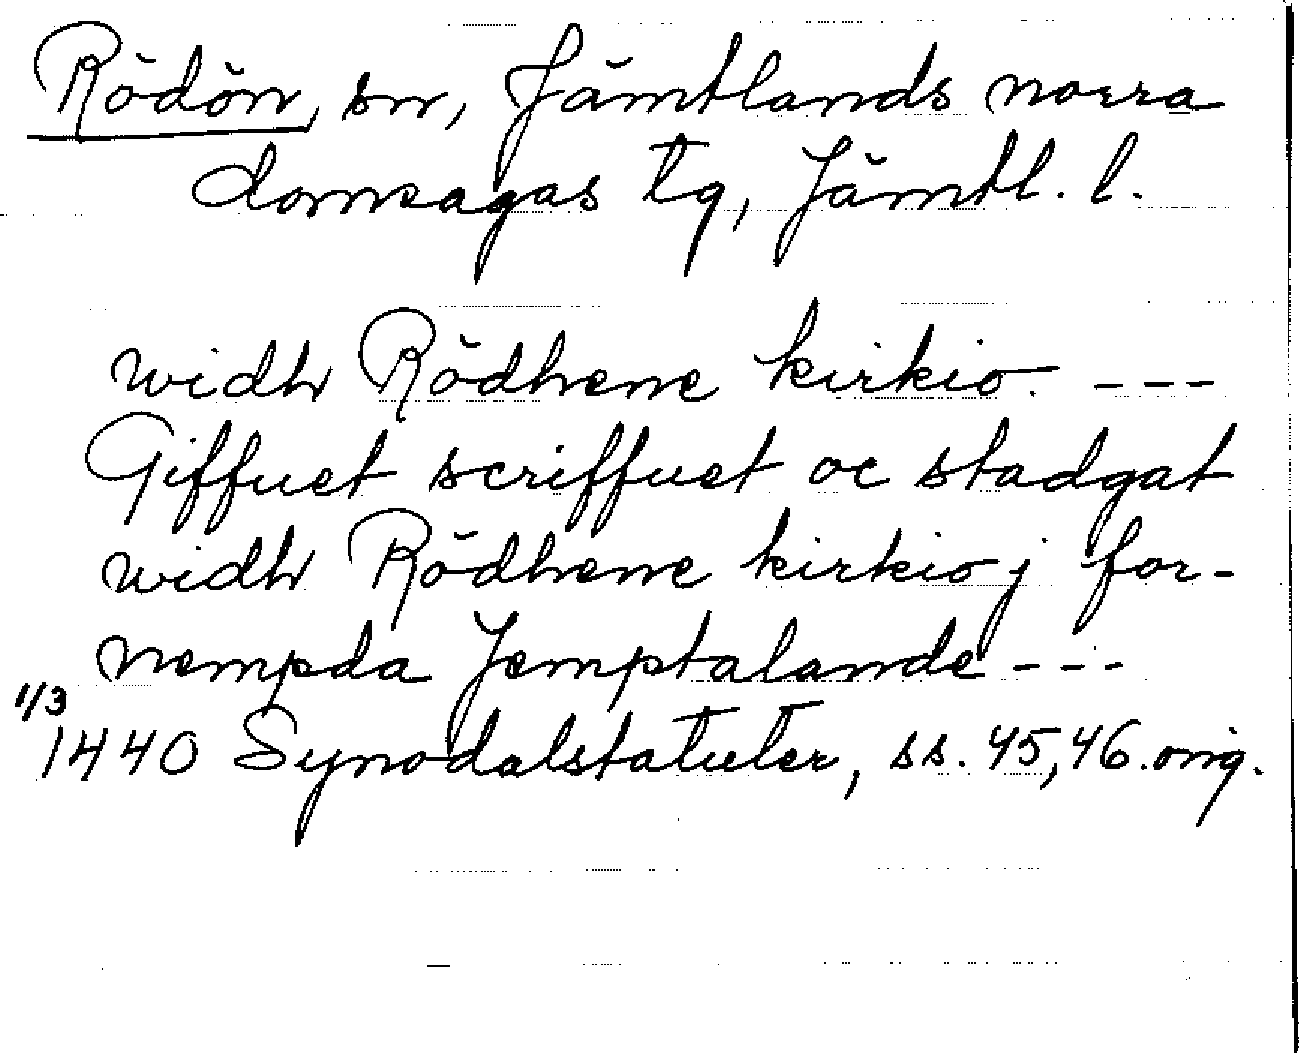 Rödön, sn, Jämtlands norra
domsagas tg, Jämtl. l.
widh Rödhene kirkio. ---
Giffuet scriffuet oc stadgat
widh Rödhene kirkio j for-
nempda Jemptalande ---
1/3
1440 Synodalstatuter, ss. 45, 46. orig.